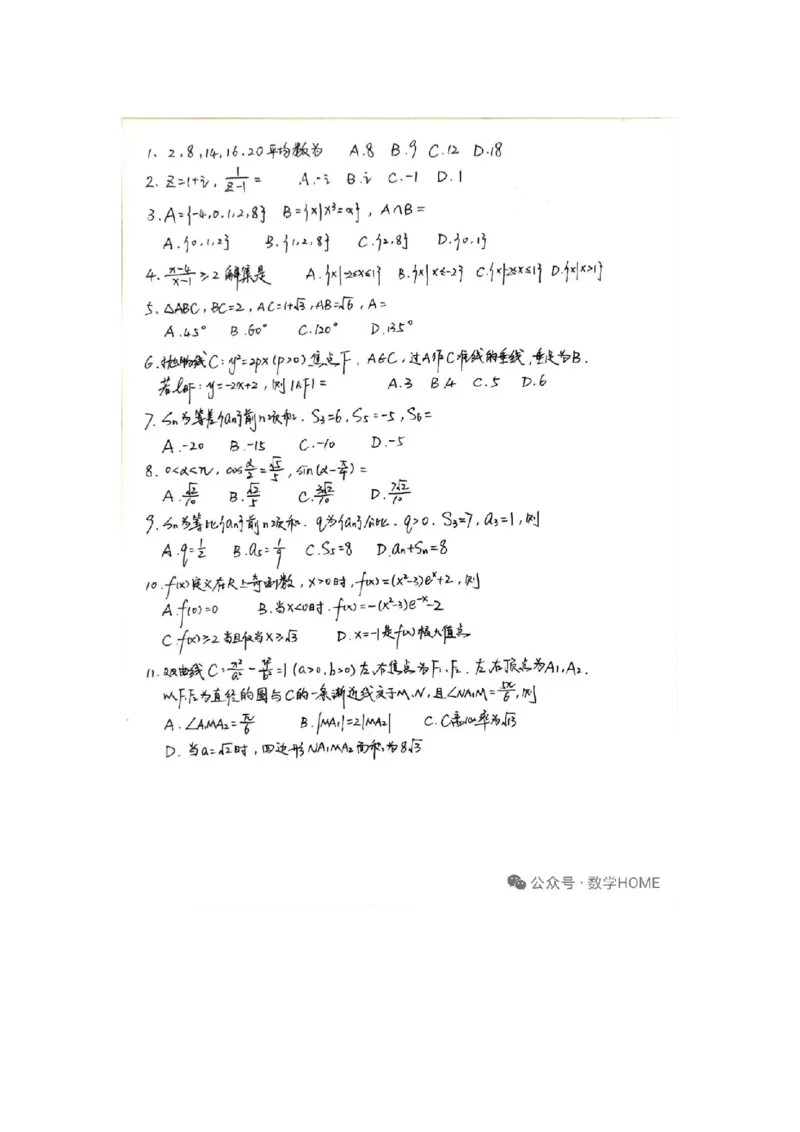 1、2,8,14,16,20平均数为 A.8 B.9 C.12 D.18
2、z=1+i, 1/(z-1) = A.-i B.i C.-1 D.1
3、A={-4,0,1,2,8} B={x|x³=x}, A∩B=
A.{0,1,2} B.{1,2,8} C.{2,8} D.{0,1}
4、(x-4)/(x-1)≥2解集是 A.{x|-2≤x≤1} B.{x|x≤-2} C.{x|-2≤x<1} D.{x|x>1}
5、△ABC, BC=2, AC=1+√3, AB=√6, A=
A.45° B.60° C.120° D.135°
6.抛物线C:y²=2px(p>0)焦点F, A∈C, 过A作C准线的垂线,垂足为B.
若l_BF:y=-2x+2,则|AF|= A.3 B.4 C.5 D.6
7、Sn为等差{an}前n项和. S₃=6, S₅=-5, S₆=
A.-20 B.-15 C.-10 D.-5
8、0<α<π, cos α/2=√5/5, sin(α-π/4)=
A.√2/10 B.√2/5 C.3√2/10 D.7√2/10
9、Sn为等比{an}前n项和. q为{an}公比. q>0. S₃=7, a₃=1,则
A.q=1/2 B.a₅=1/9 C.S₅=8 D.an+Sn=8
10.f(x)定义在R上奇函数, x>0时, f(x)=(x²-3)eˣ+2,则
A.f(0)=0 B.当x<0时. f(x)=-(x²-3)e⁻ˣ-2
C.f(x)≥2当且仅当x≥√3 D.x=-1是f(x)极大值点
11.双曲线C:x²/a²-y²/b²=1(a>0,b>0)左、右焦点为F₁、F₂. 左、右顶点为A₁,A₂.
以F₁F₂为直径的圆与C的一条渐近线交于M、N,且∠NA₁M=5π/6,则
A.∠A₁MA₂=π/6 B.|MA₁|=2|MA₂| C.C离心率为√13
D.当a=√2时,四边形NA₁MA₂面积为8√3
公众号·数学HOME